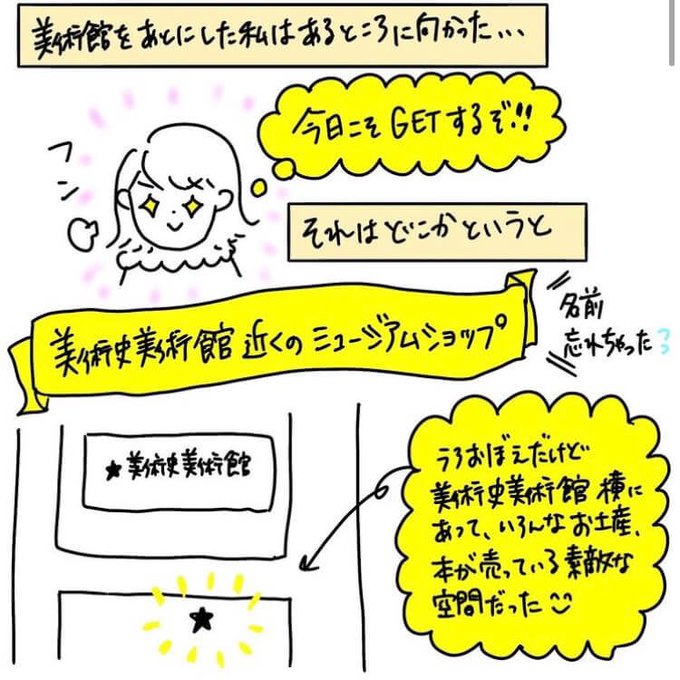 美術館をあとにした私はあるところに向かった...
今日こそGETするぞ!!
フン
それはどこかというと
美術史美術館近くのミュージアムショップ
名前
忘れちゃった
★美術史美術館
うろおぼえだけど
美術史美術館 横に
あって、いろんなお土産、
本が売っている素敵な
空間だった
★